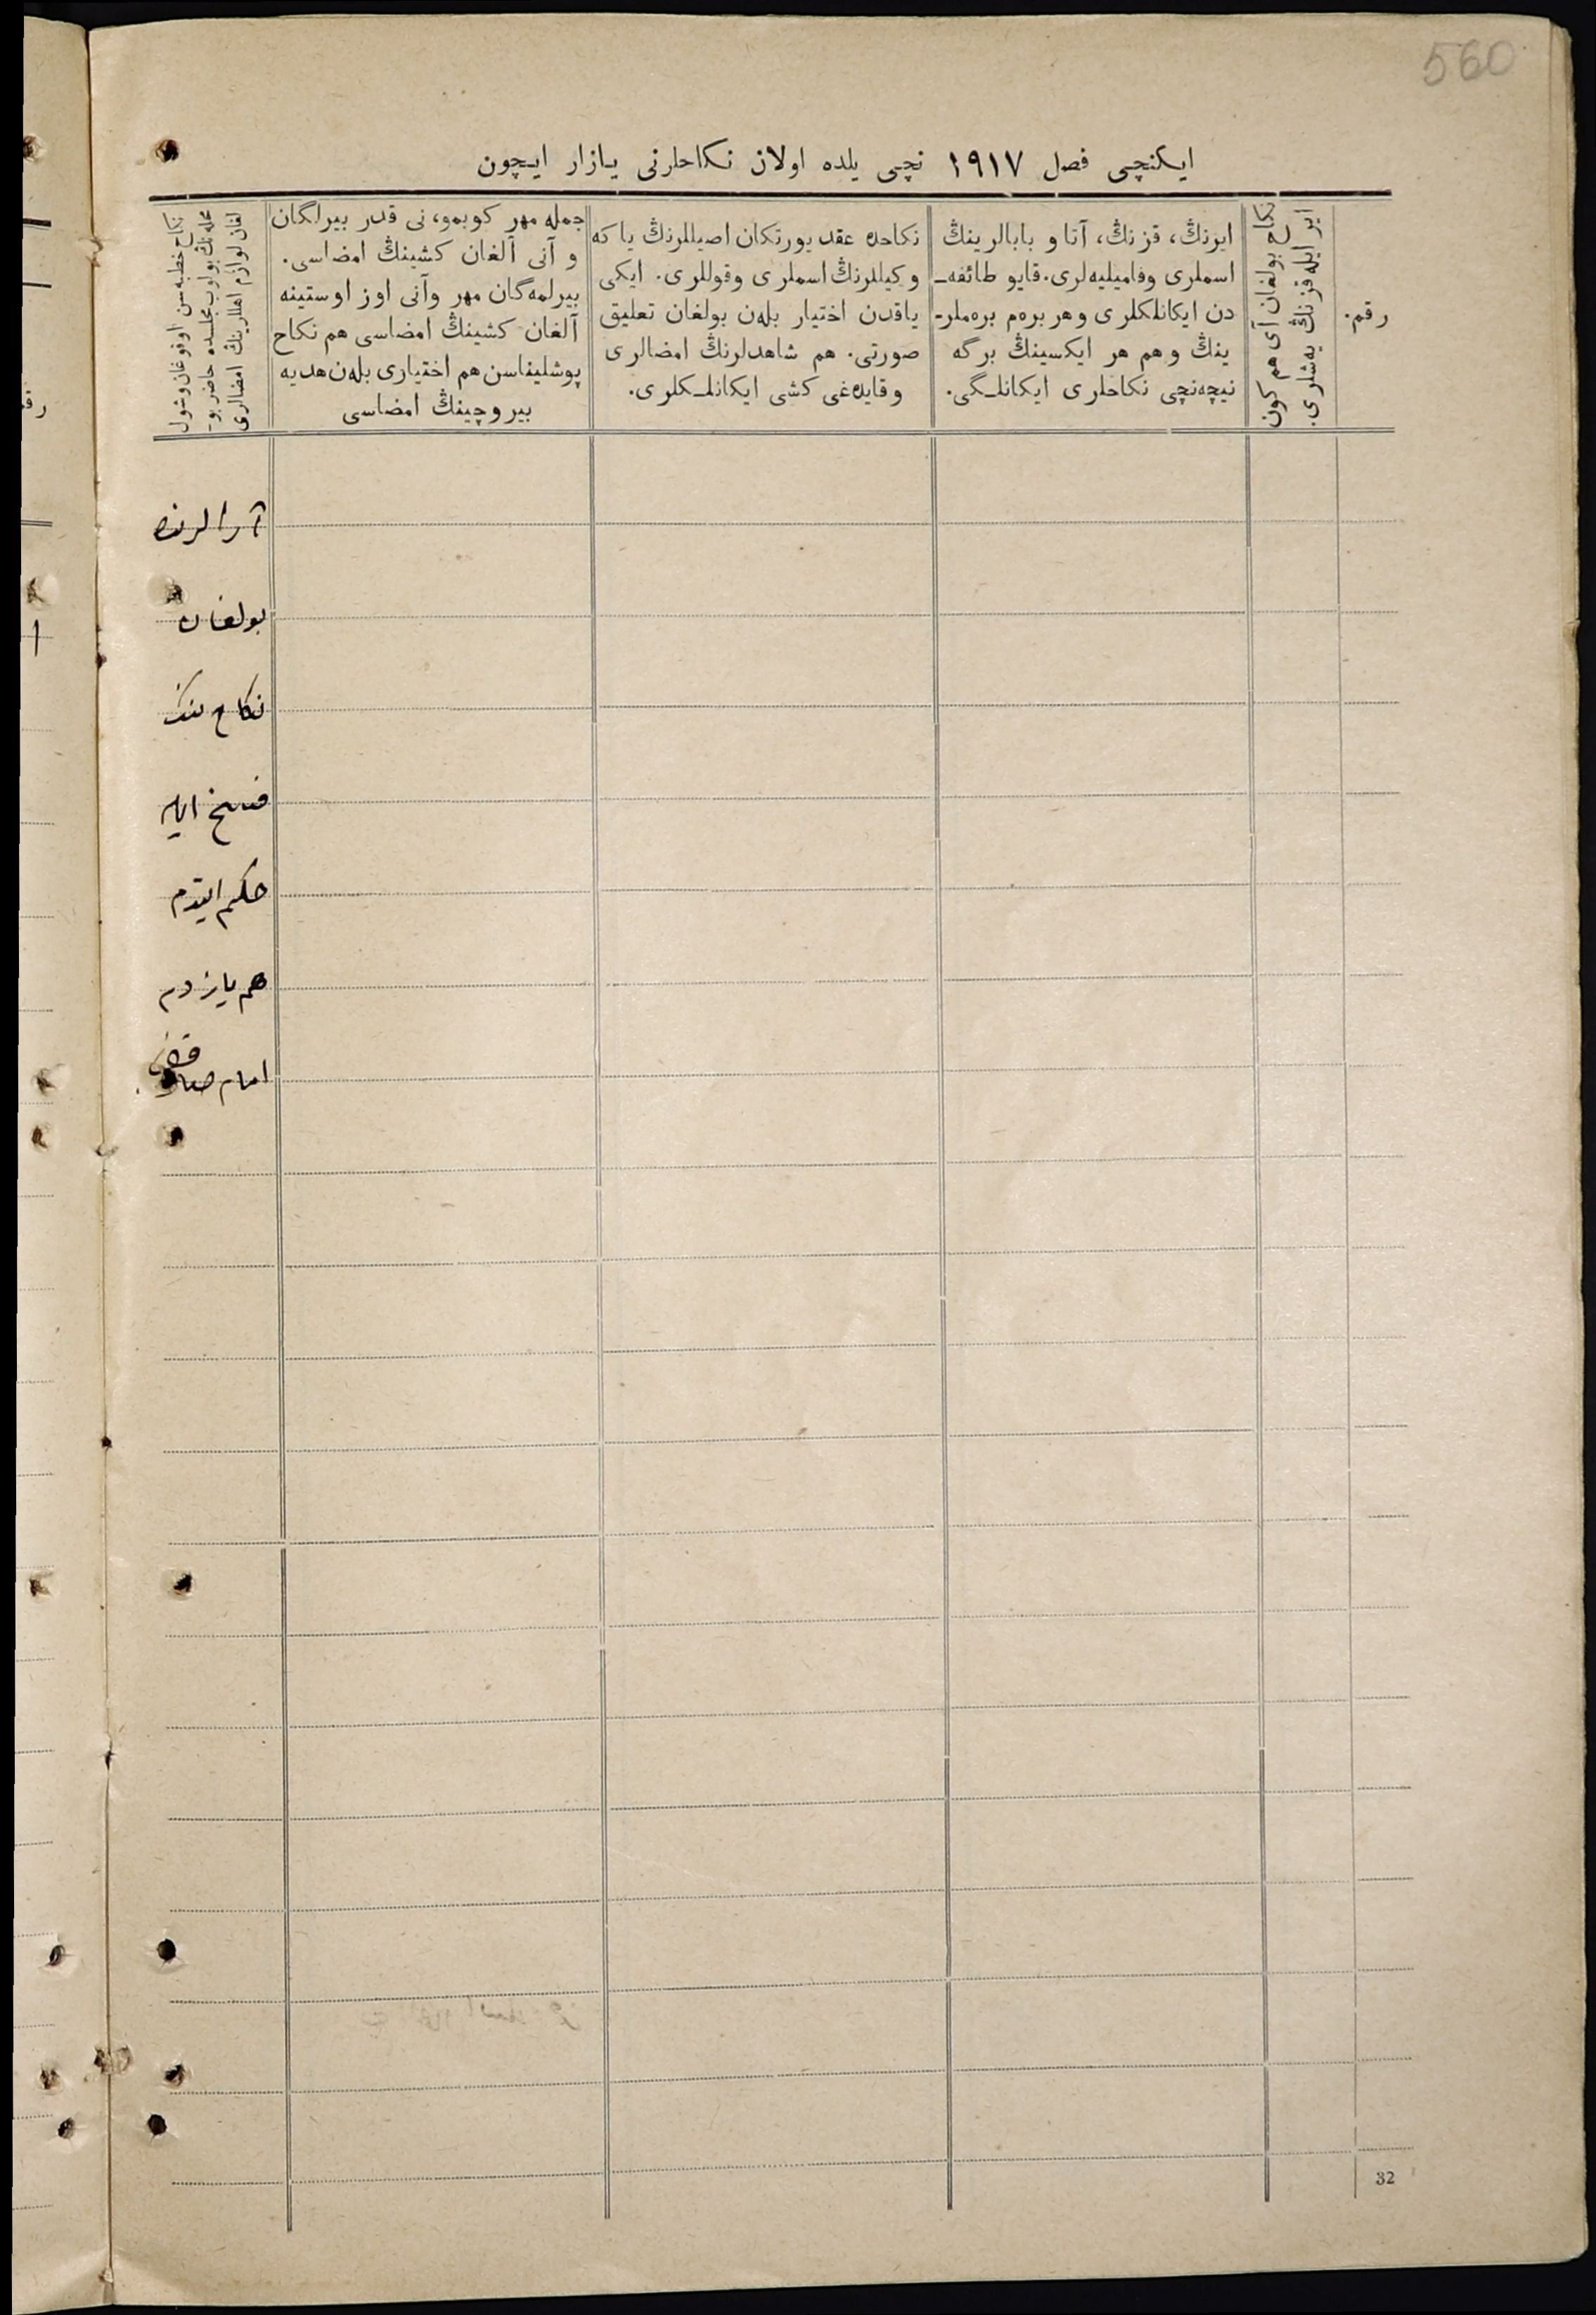 560
ایکنچی فصل ۱۹۱۷ نچی یلده اولان نکاحلرنی یازار ایچون
رقم.
نکاح بولغان آی هم کون
ایر ایله قزنڭ یه‌شلری.
ایرنڭ، قزنڭ، آتا و بابالرینڭ
اسملری وفامیلیه‌لری. قایو طائفه‌ـ
دن ایکانلکلری وهر بره‌م بره‌ملرـ
ینڭ وهم هر ایکسینڭ برگه
نیچه‌نچی نکاحلری ایکانلـگی.
نکاحده عقد یورتکان اصیللرنڭ یا که
وکیللرنڭ اسملری وقوللری. ایکی
یاقدن اختیار بله‌ن بولغان تعلیق
صورتی. هم شاهدلرنڭ امضالری
وقایده‌غی کشی ایکانلـکلری.
جمله مهر کوبمو، نی قدر بیرلگان
و آنی آلغان کشینڭ امضاسی.
بیرلمه‌گان مهر وآنی اوز اوستینه
آلغان کشینڭ امضاسی هم نکاح
پوشلیناسن هم اختیاری بله‌ن هدیه
بیروچینڭ امضاسی
نکاح خطبه‌سن اوقوغان وشول
محله‌نڭ بولوب مجلسده حاضر بوـ
لغان لوازم اهللرینڭ امضالری
آرالرنده
بولغان
نکاح ننڭ
فسخ ایله
حکم ایتدم
هم یازدم
امام
32